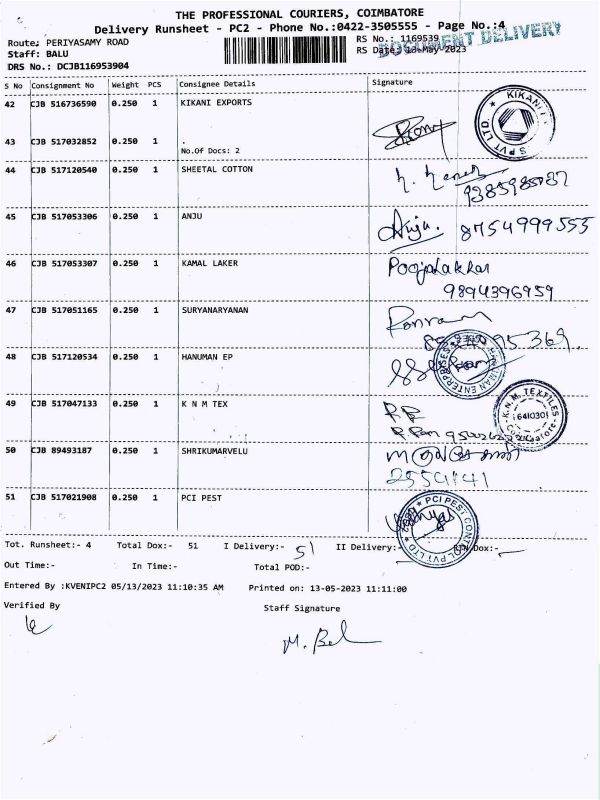 THE PROFESSIONAL COURIERS, COIMBATORE
Delivery Runsheet - PC2 - Phone No.:0422-3505555 - Page No.:4
Route: PERIYASAMY ROAD
RS No.: 1169539
DOCUMENT DELIVERY
Staff: BALU
RS Date: 13-May-2023
DRS No.: DCJB116953904
S No Consignment No Weight PCS Consignee Details Signature
42 CJB 516736590 0.250 1 KIKANI EXPORTS
KIKANI
S PVT LTD.
43 CJB 517032852 0.250 1 .
No.Of Docs: 2
44 CJB 517120540 0.250 1 SHEETAL COTTON
45 CJB 517053306 0.250 1 ANJU Anju. 8754999555
46 CJB 517053307 0.250 1 KAMAL LAKER
9894396959
47 CJB 517051165 0.250 1 SURYANARYANAN
48 CJB 517120534 0.250 1 HANUMAN EP
HANUMAN ENTERPRISES
49 CJB 517047133 0.250 1 K N M TEX
K.N.M. TEXTILES
6410301
Coimbatore
50 CJB 89493187 0.250 1 SHRIKUMARVELU
51 CJB 517021908 0.250 1 PCI PEST
PCI PEST CONTROL PVT LTD
Tot. Runsheet:- 4 Total Dox:- 51 I Delivery:- 51 II Delivery:- RTN Dox:-
Out Time:- In Time:- Total POD:-
Entered By :KVENIPC2 05/13/2023 11:10:35 AM Printed on: 13-05-2023 11:11:00
Verified By Staff Signature